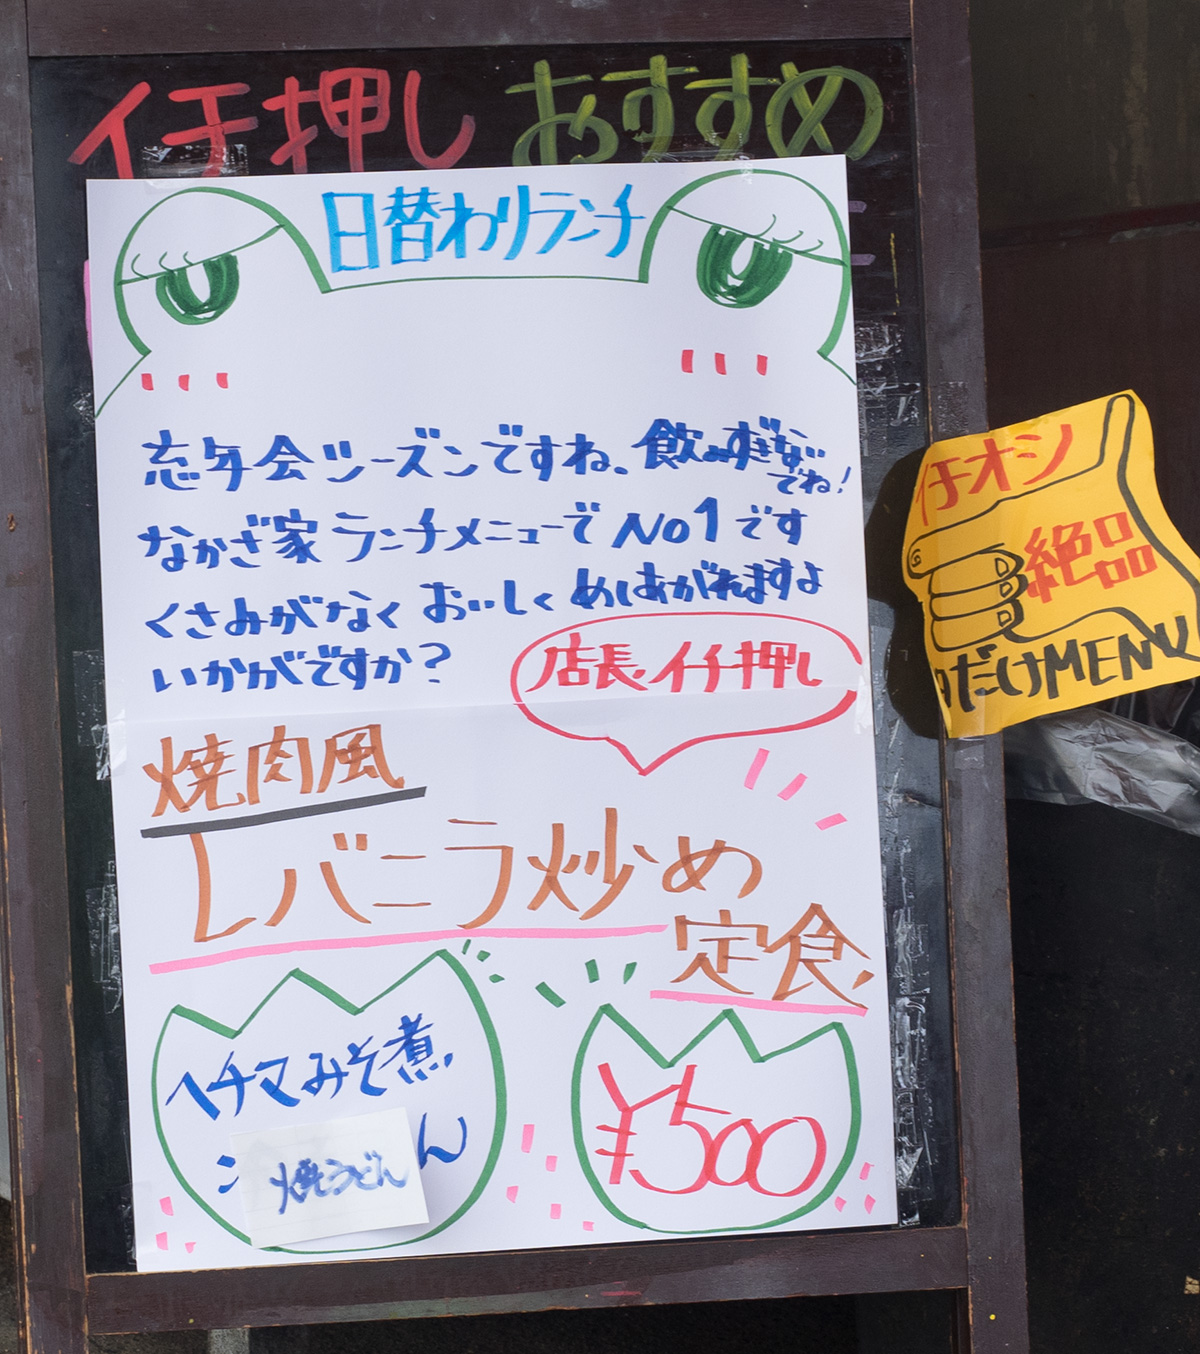 イチ押し おすすめ
日替わりランチ
忘年会シーズンですね、飲みすぎない
でね!
なかざ家 ランチメニューで No1です
くさみがなく おいしく めしあがれますよ
いかがですか?
店長イチ押し
焼肉風
レバニラ炒め
定食
ヘチマみそ煮
焼うどん
ん
¥500
イチオシ
絶品
だけMENU